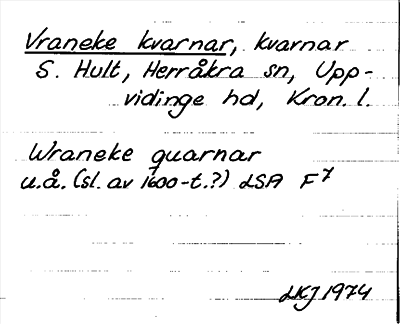 Vraneke kvarnar, kvarnar
S. Hult, Herråkra sn, Upp-
vidinge hd, Kron. l.
Wraneke quarnar
u.å. (sl. av 1600-t.?) LSA F7
LKJ 1974